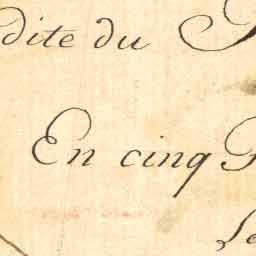 dite du
En cinq